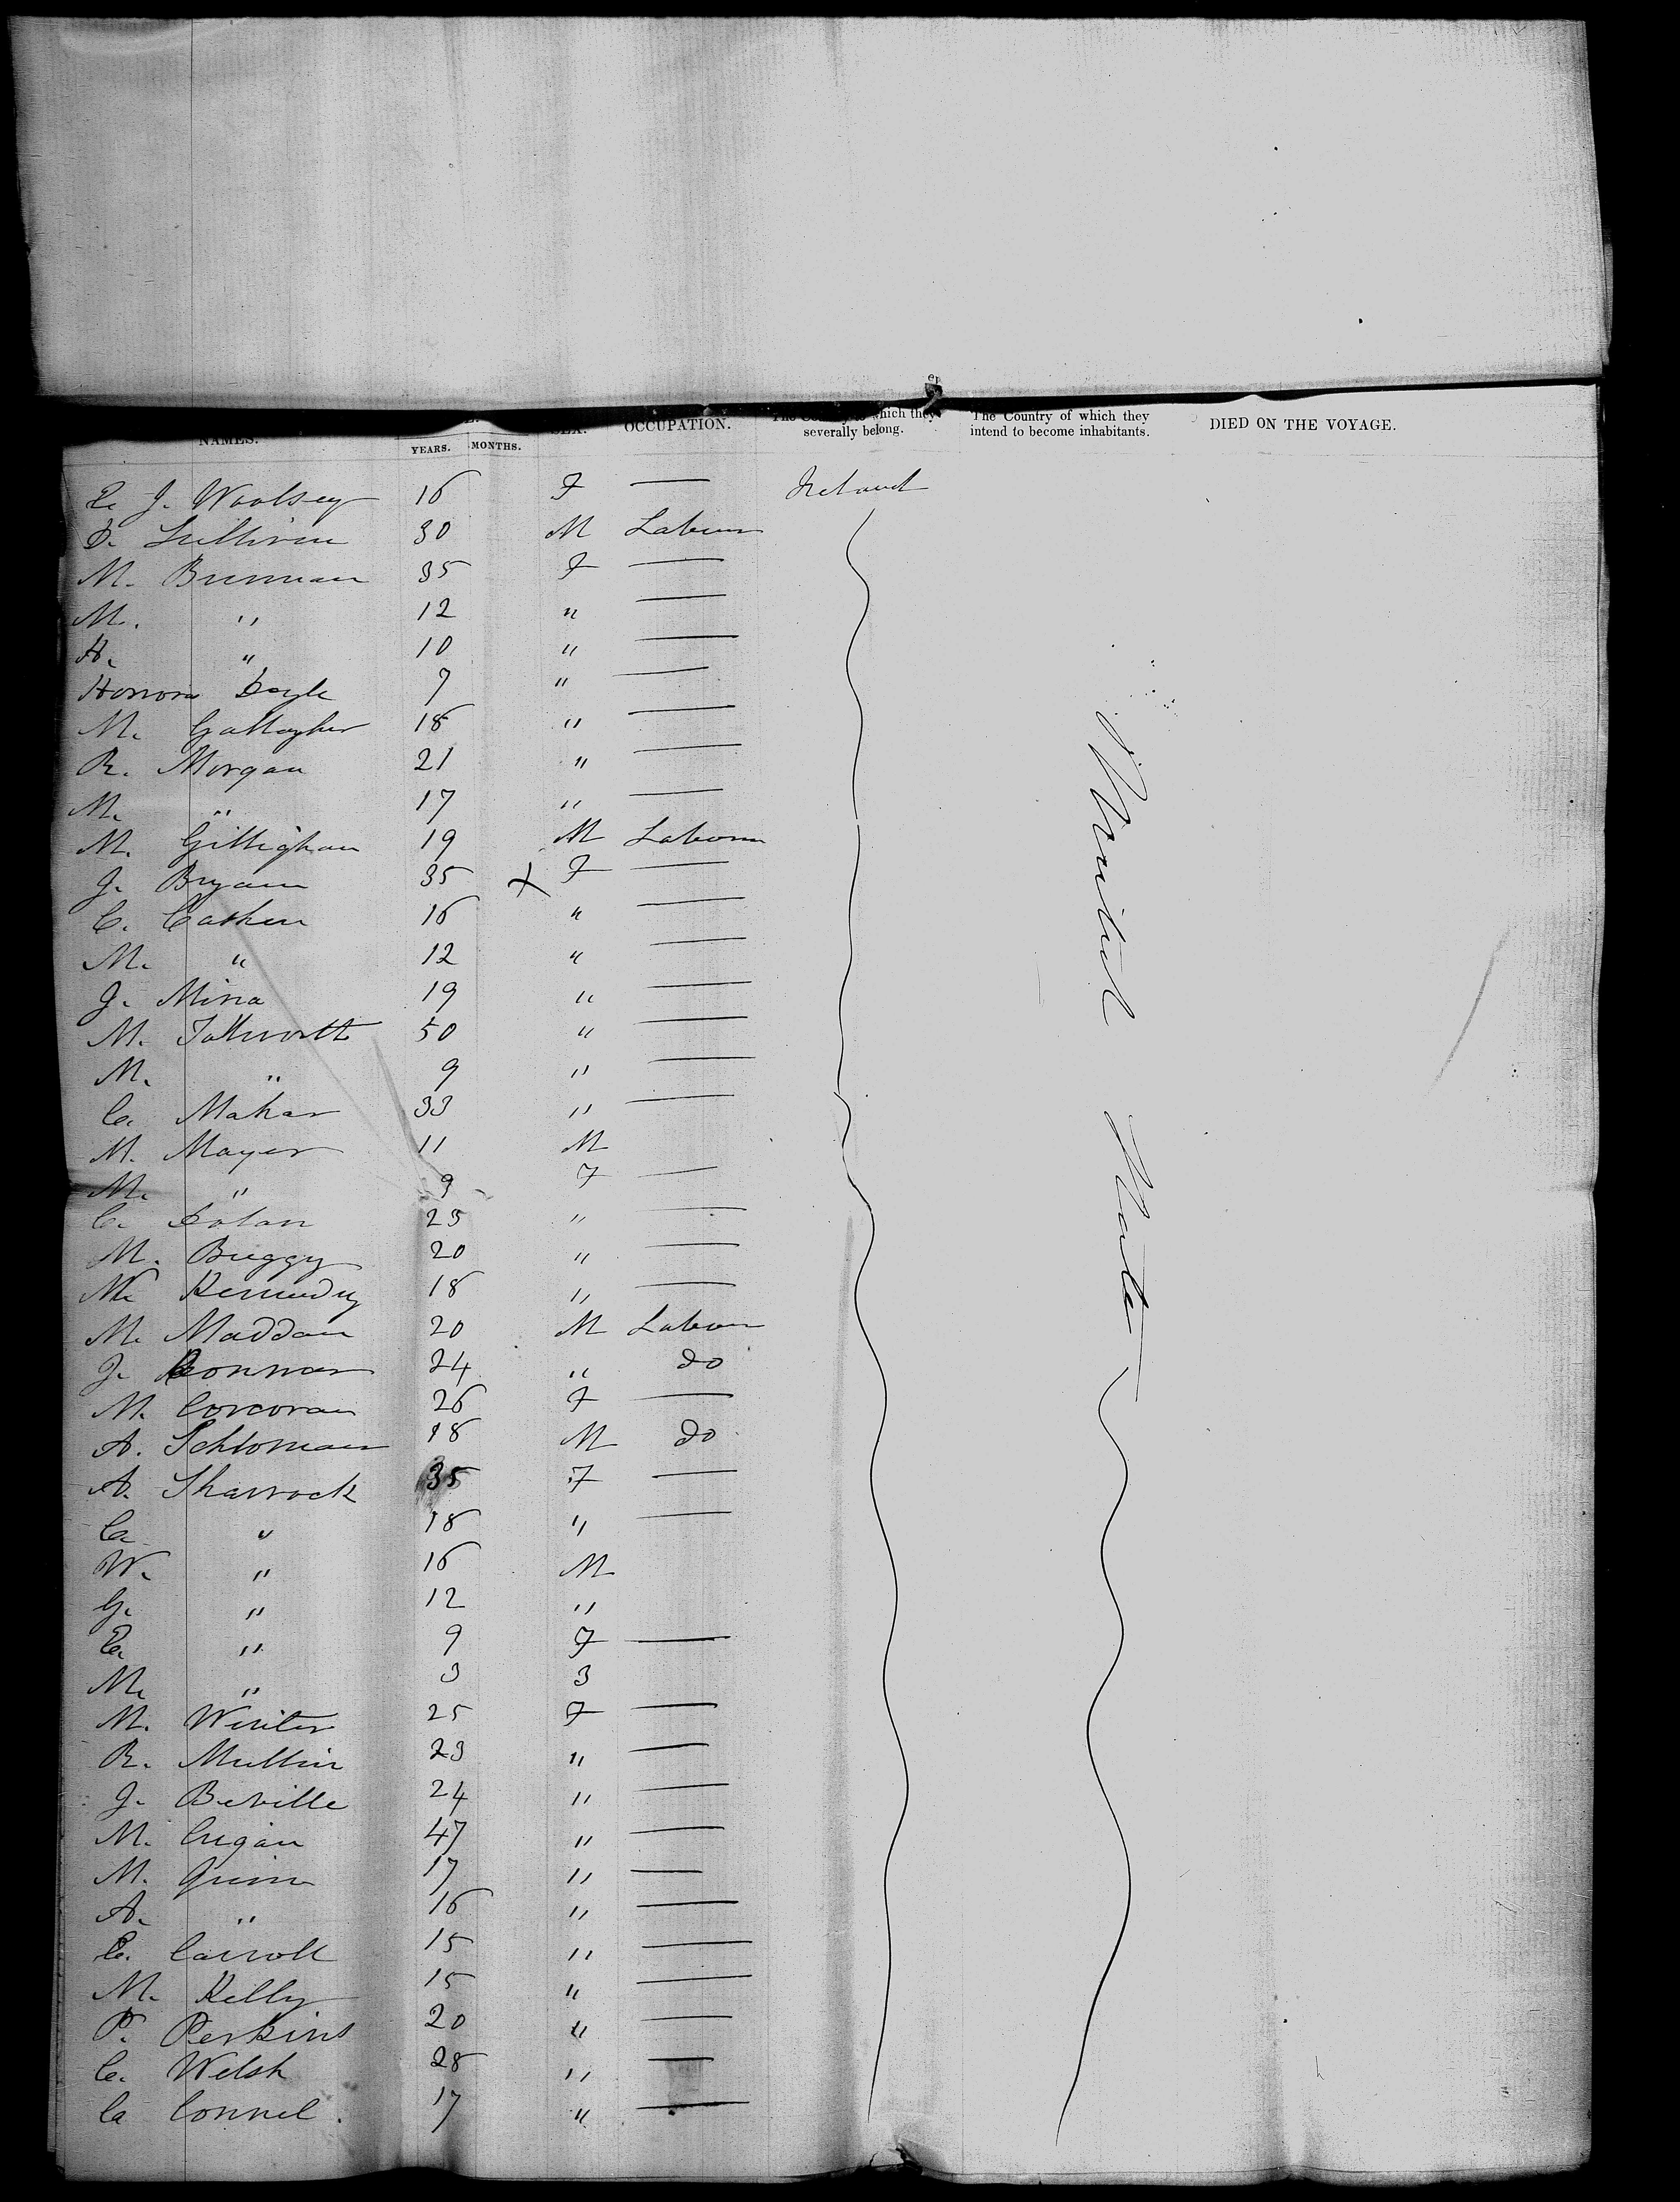 NAMES. YEARS. MONTHS. SEX. OCCUPATION. The Country to which they severally belong. The Country of which they intend to become inhabitants. DIED ON THE VOYAGE.
E. J. Woolsey 16 F — Ireland
D. Sullivan 30 M Labourer
M. Brennan 35 F —
M. " 12 " —
A. " 10 " —
Honnora Doyle 7 " —
M. Gallagher 18 " —
R. Morgan 21 " —
M. " 17 " —
M. Gillighan 19 M Labourer
J. Bryam 35 F —
C. Cashen 16 " —
M. " 12 " —
J. Mina 19 " —
M. 50 " —
M. " 9 " —
C. Mahar 33 " —
M. Mayer 11 M
M. " 9 F —
C. Dolan 23 " —
M. Breggy 20 " —
M. Kennedy 18 " —
M. Maddan 20 M Labourer
J. Connor 24 " do
M. Corcoran 26 F —
A. Schloman 18 M do
A. Sharrock 35 F —
C. " 18 " —
W. " 16 M
G. " 12 "
E. " 9 F —
M. " 3 3
M. Winter 25 F —
R. Mullin 23 " —
J. Beville 24 " —
M. Crigan 47 " —
M. Quinn 17 " —
A. " 16 " —
C. Carroll 15 " —
M. Kelly 15 " —
P. Perkins 20 " —
C. Welsh 28 " —
C. Connel. 17 " —
United States